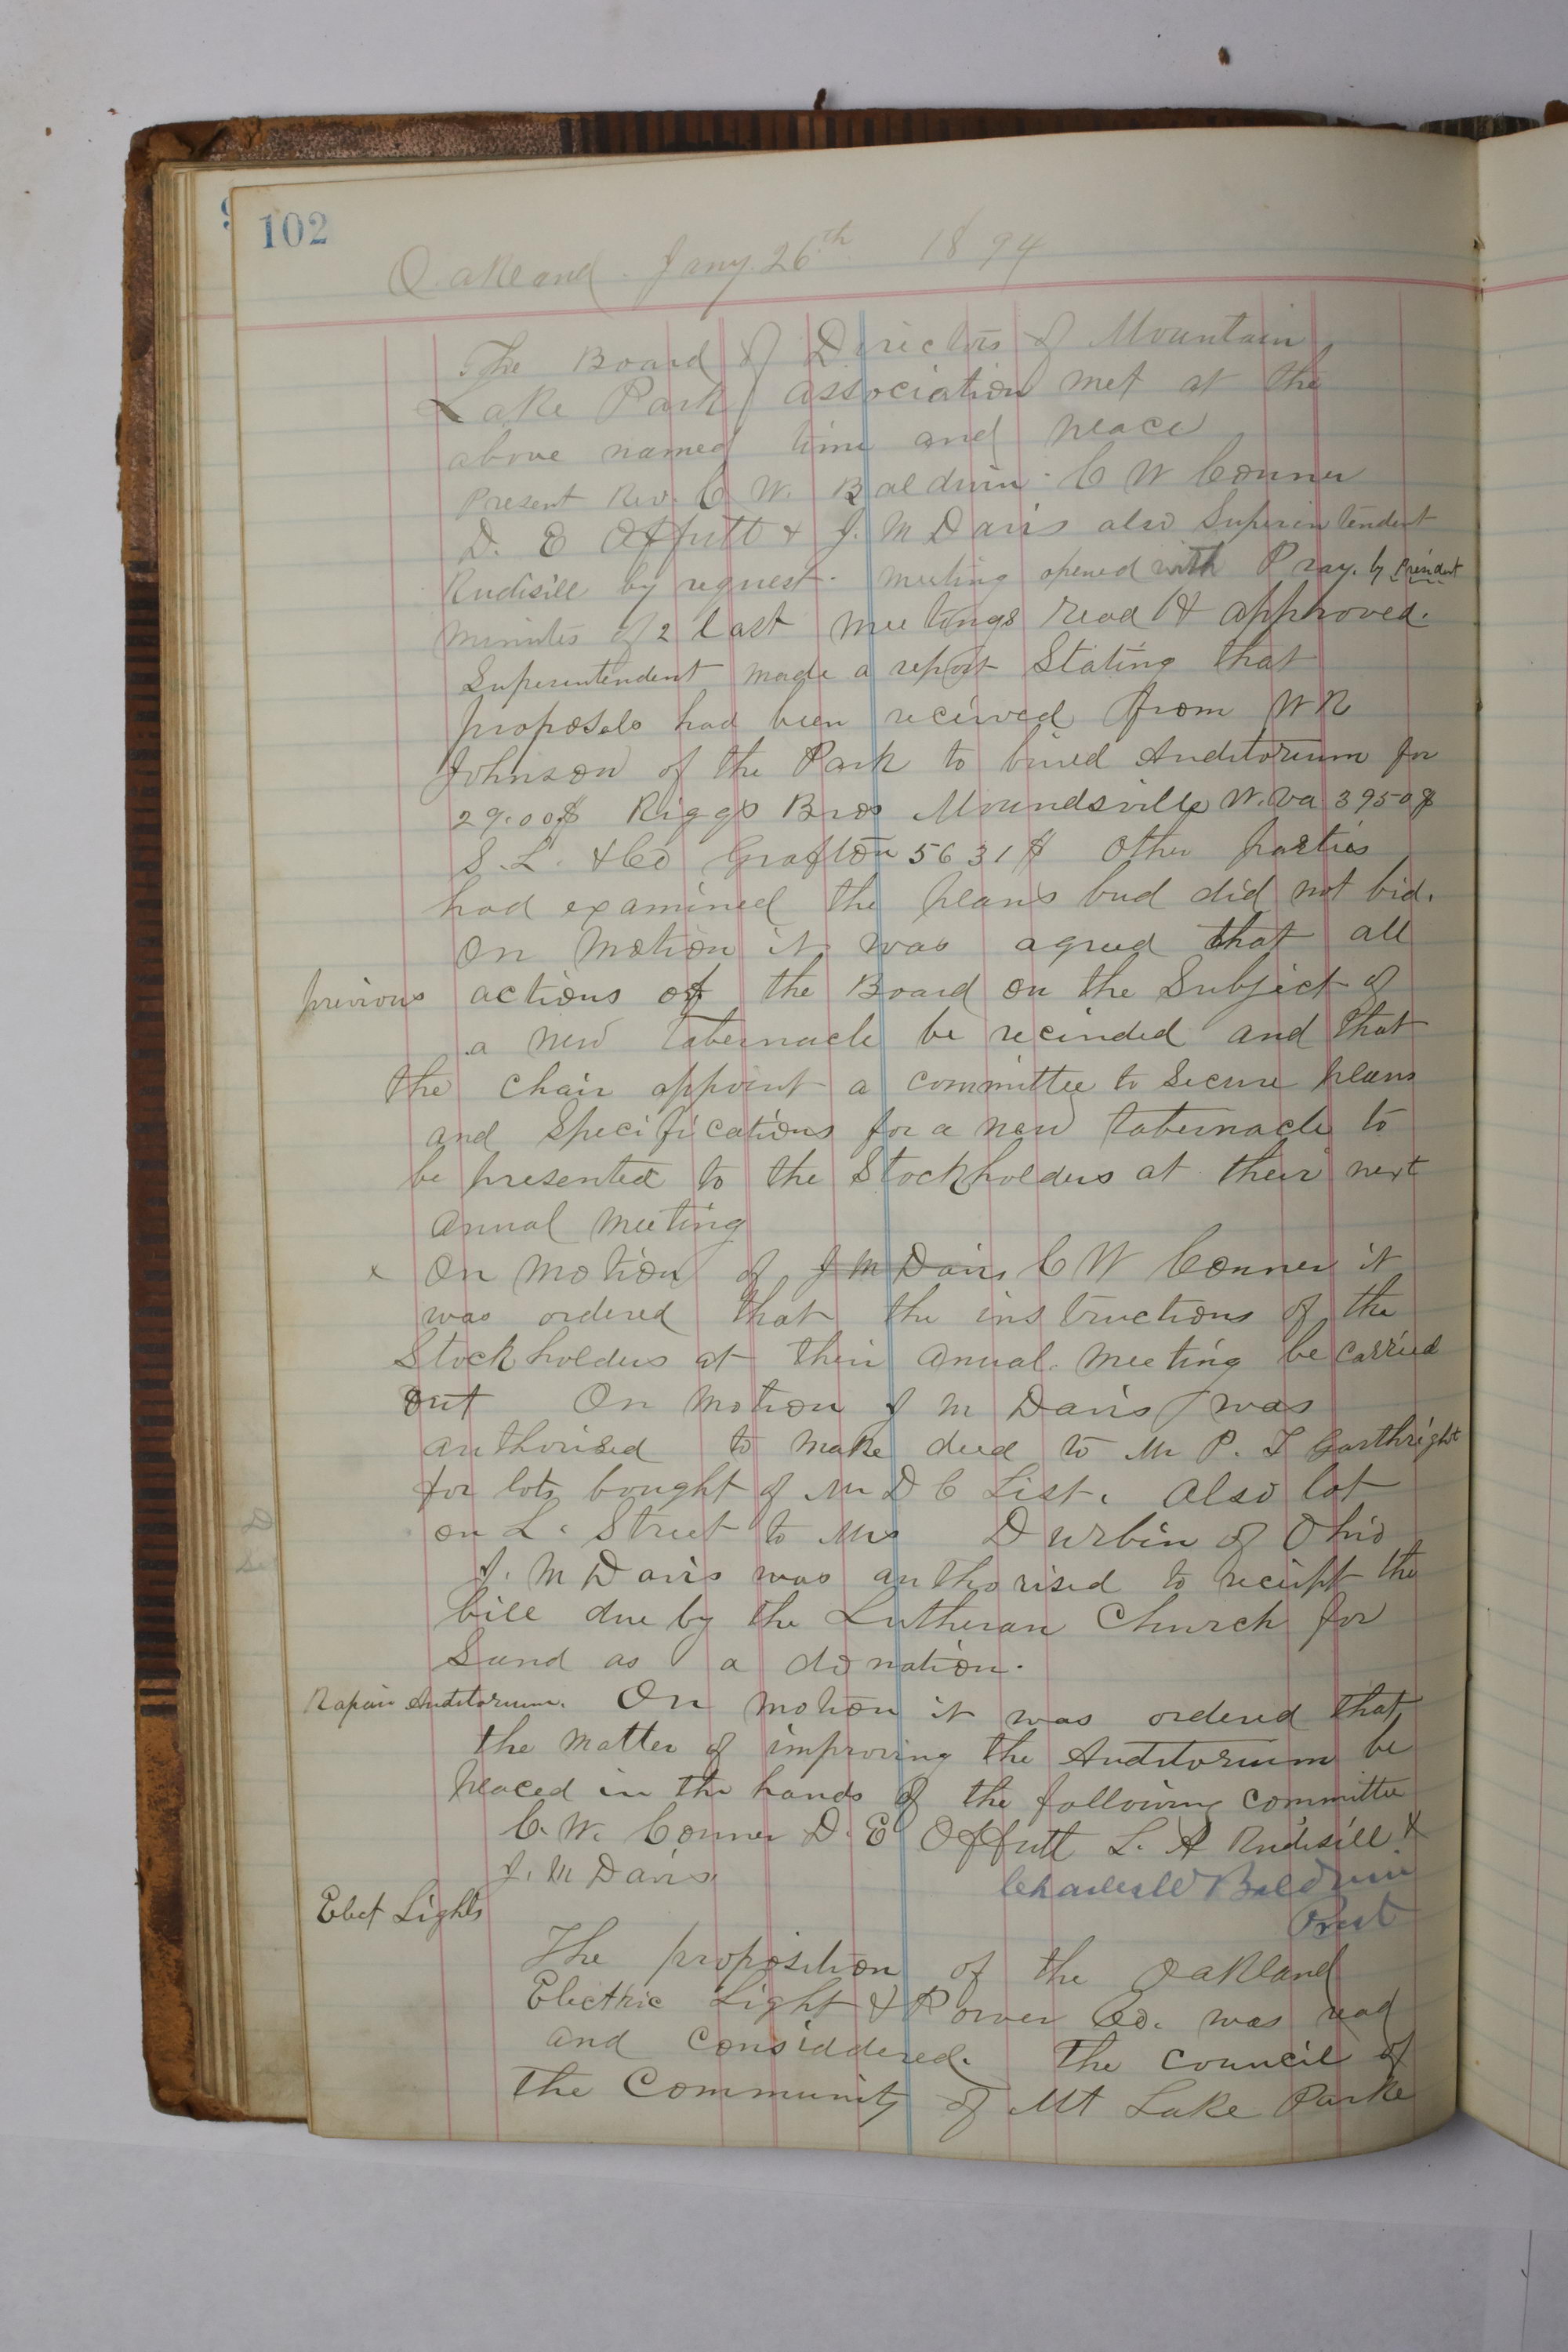 102
Oakland. Jany. 26th 1894
The Board of Directors of Mountain
Lake Park association met at the
above named time and place
Present Rev. C. W. Baldwin. C W Conner
D. E Offutt & J. M Davis also Superintendent
Rudisill by request. meeting opened with Pray. by President
minutes of 2 last meetings read & approved.
Superentendent made a report Stating that
proposals had been received from W R
Johnson of the Park to build Auditorium for
29.00$ Riggs Bros Moundsville W. Va 3950$
S. L. & Co Grafton 5631$ Other parties
had examined the plans bud did not bid.
On motion it was agreed that all
previous actions of the Board on the Subject of
a new Tabernacle be recinded and that
the Chair appoint a committee to Secure plans
and Specifications for a new tabernacle to
be presented to the Stockholders at their next
anual meeting
x On motion of J M Davis C W Conner it
was ordered that the instructions of the
Stockholders at their anual. meeting be carried
out On motion J M Davis was
authorised to make deed to Mr P. T Garthright
for lots bought of Mr D C List. also lot
on L. Street to Mrs Durbin of Ohio
J. M Davis was authorised to receipt the
bill due by the Lutheran Church for
Sand as a donation.
Rapair Auditorium. On motion it was ordered that
the matter of improving the Auditorium be
placed in the hands of the following committee
C. W. Conner D. E Offutt L. A Rudisill &
J. M Davis.
Charles W Baldwin
Prest
Elect Lights
The proposition of the Oakland
Electric Light & Power Co. was read
and considdered. The council of
the Community of Mt Lake Parke